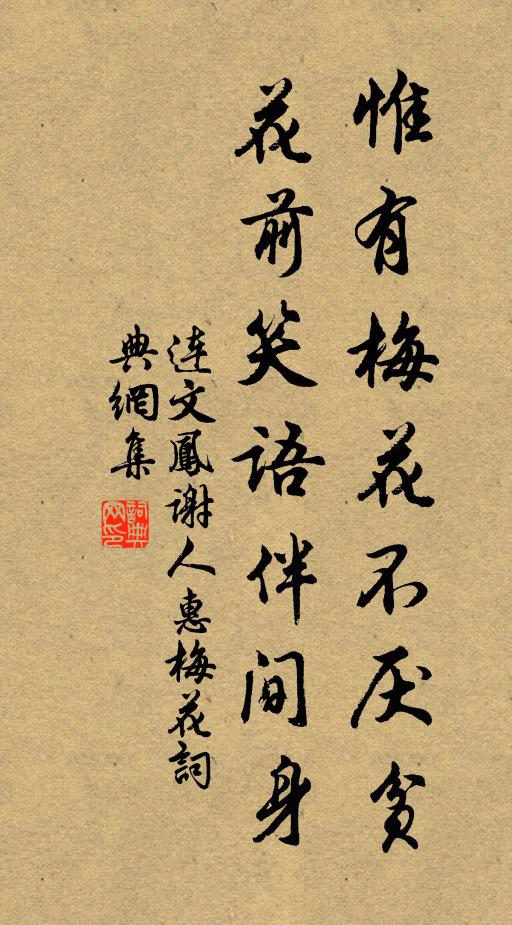 惟有梅花不厌貧
花前笑語伴间身
连文鳳谢人惠梅花詞
典網集
詞典
网印